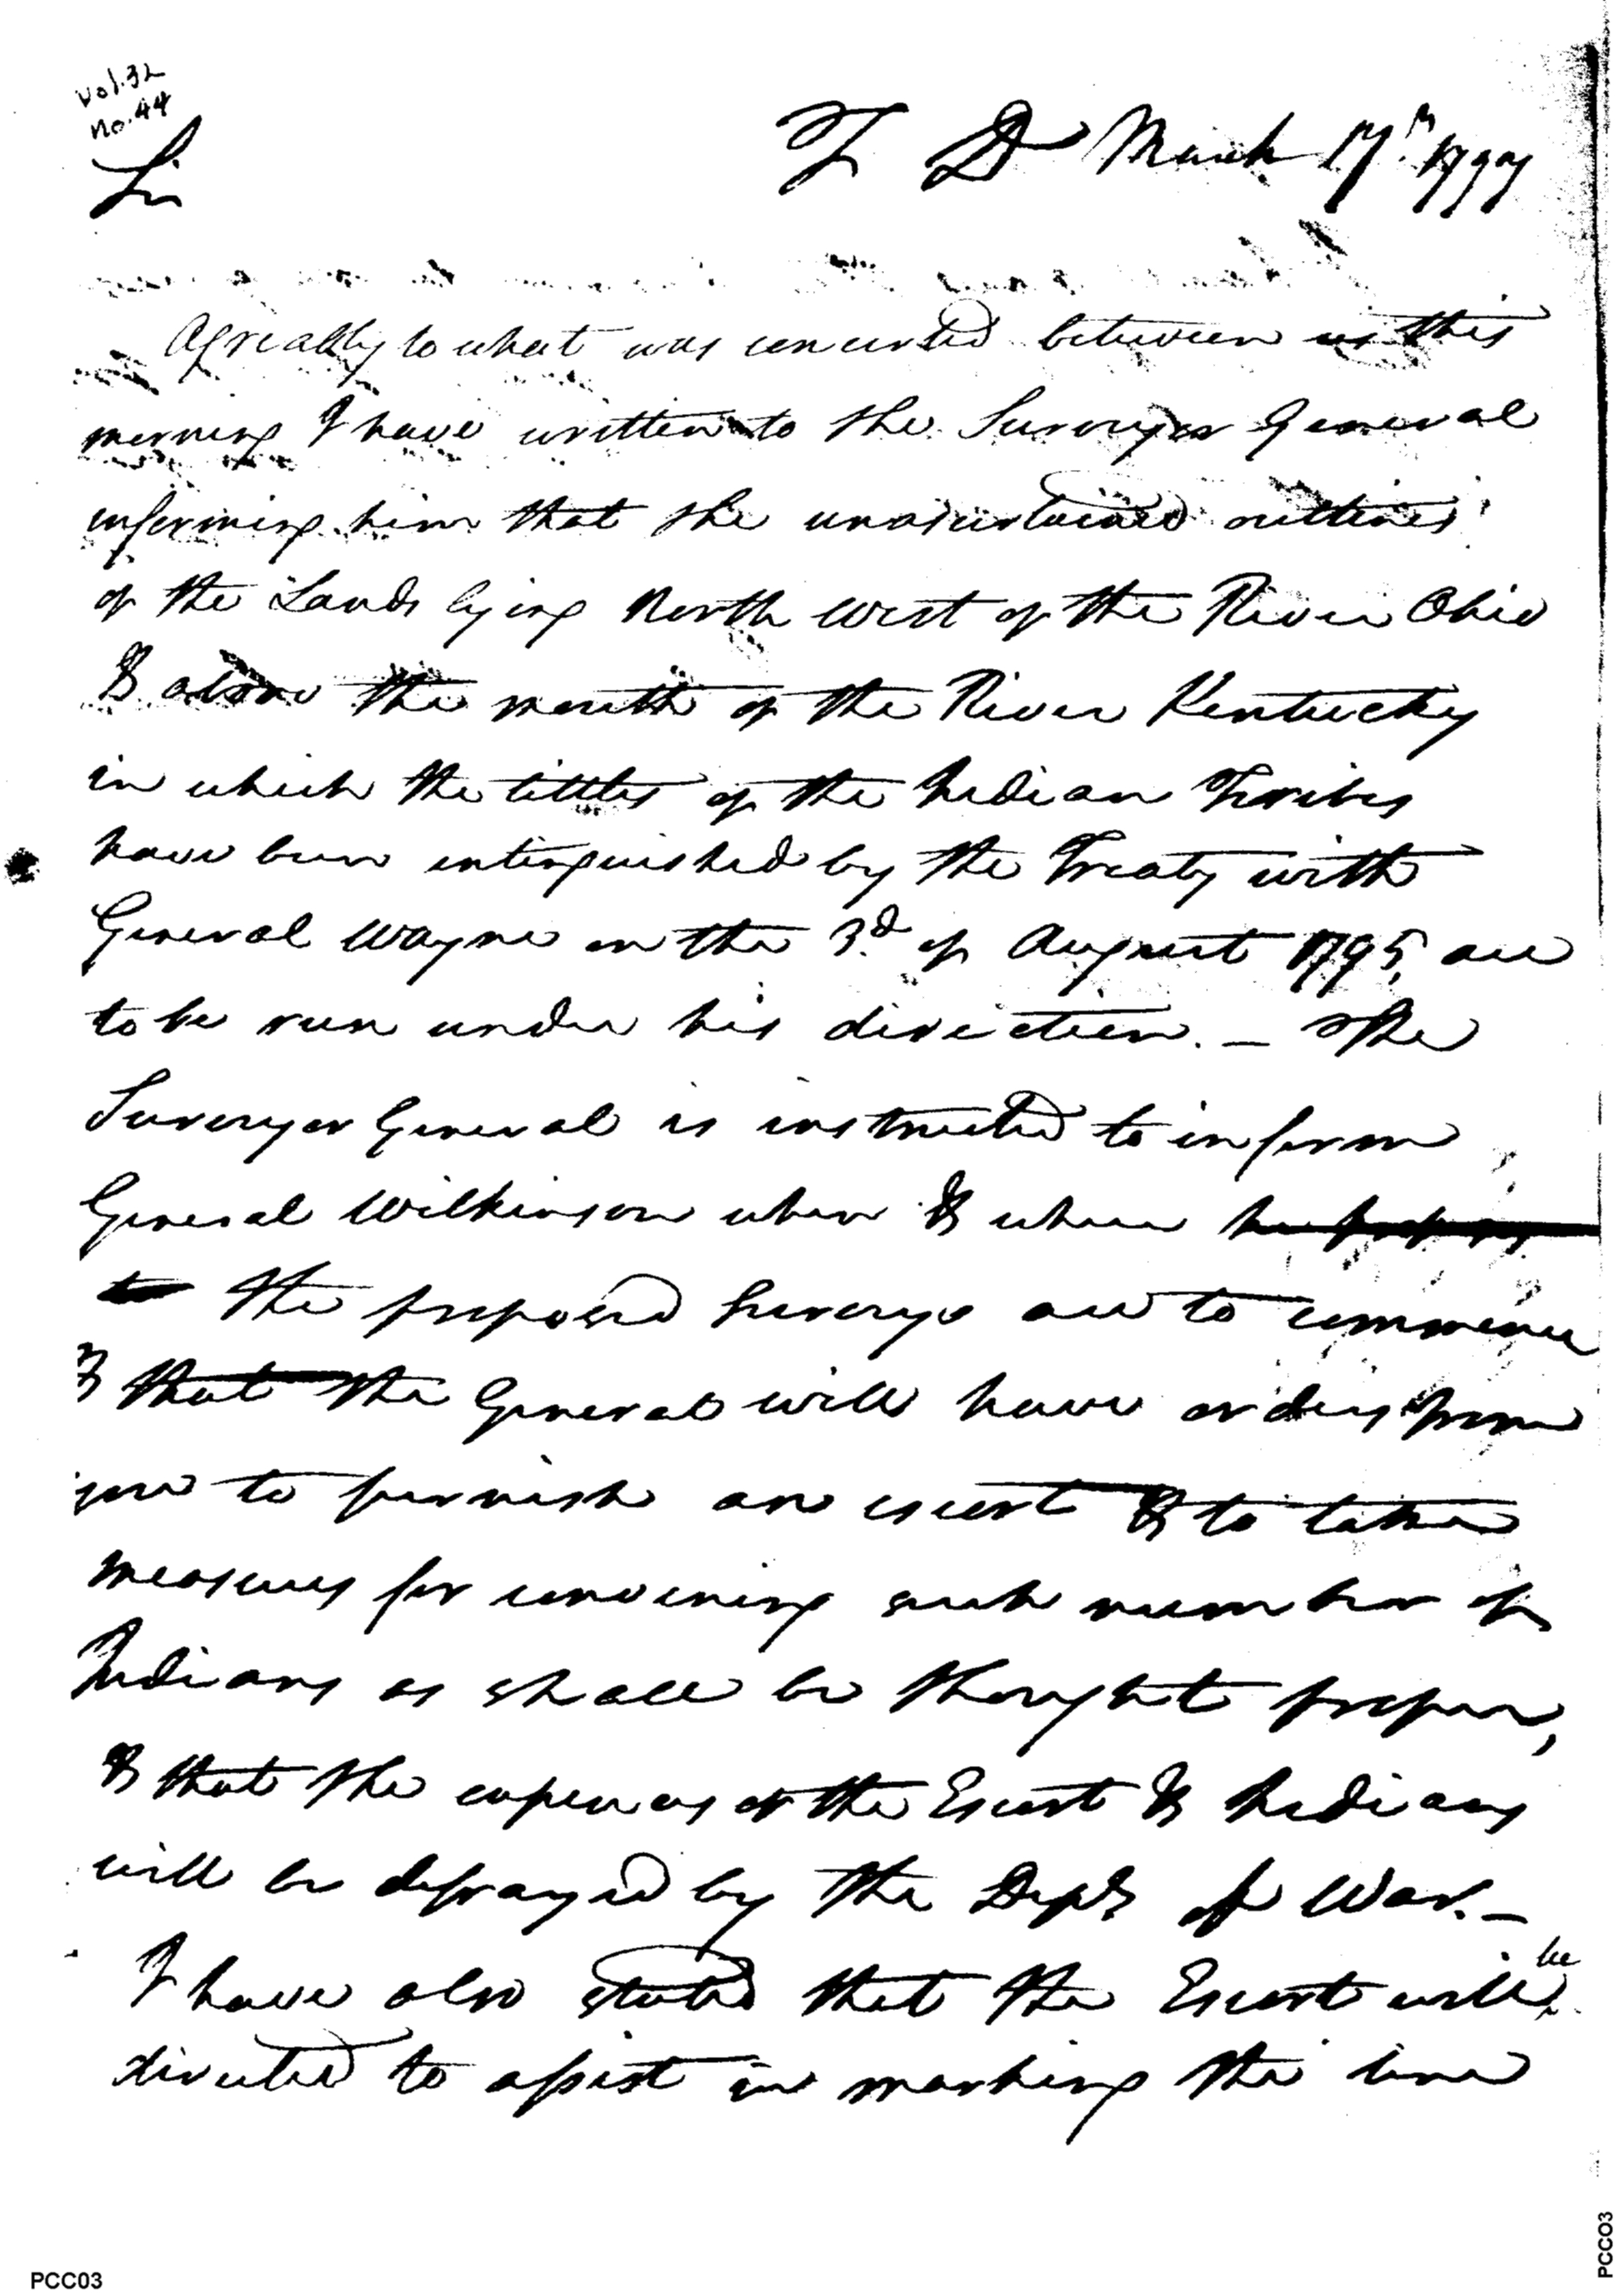 Vol. 32
No. 44
T D March 17th 1797
Sir
Agreably to what was concerted between us this
morning I have written to the Surveyor General
informing him that the unascertained outlines
of the Lands lying North West of the River Ohio
& above the mouth of the River Kentucky
in which the tittles of the Indian Tribes
have been extinguished by the Treaty with
General Wayne on the 3d of August 1795, are
to be run under his direction. — The
Surveyor General is instructed to inform
General Wilkinson when & where he proposes
to the proposed Surveys are to commence
& that the General will have orders from
you to furnish an escort & to take
measures for convening such number of
Indians as shall be thought proper,
& that the expences of the Escort & Indians
will be defrayed by the Dept of War. —
I have also stated that the Escort will be
directed to assist in marking the line
PCC03
PCC03